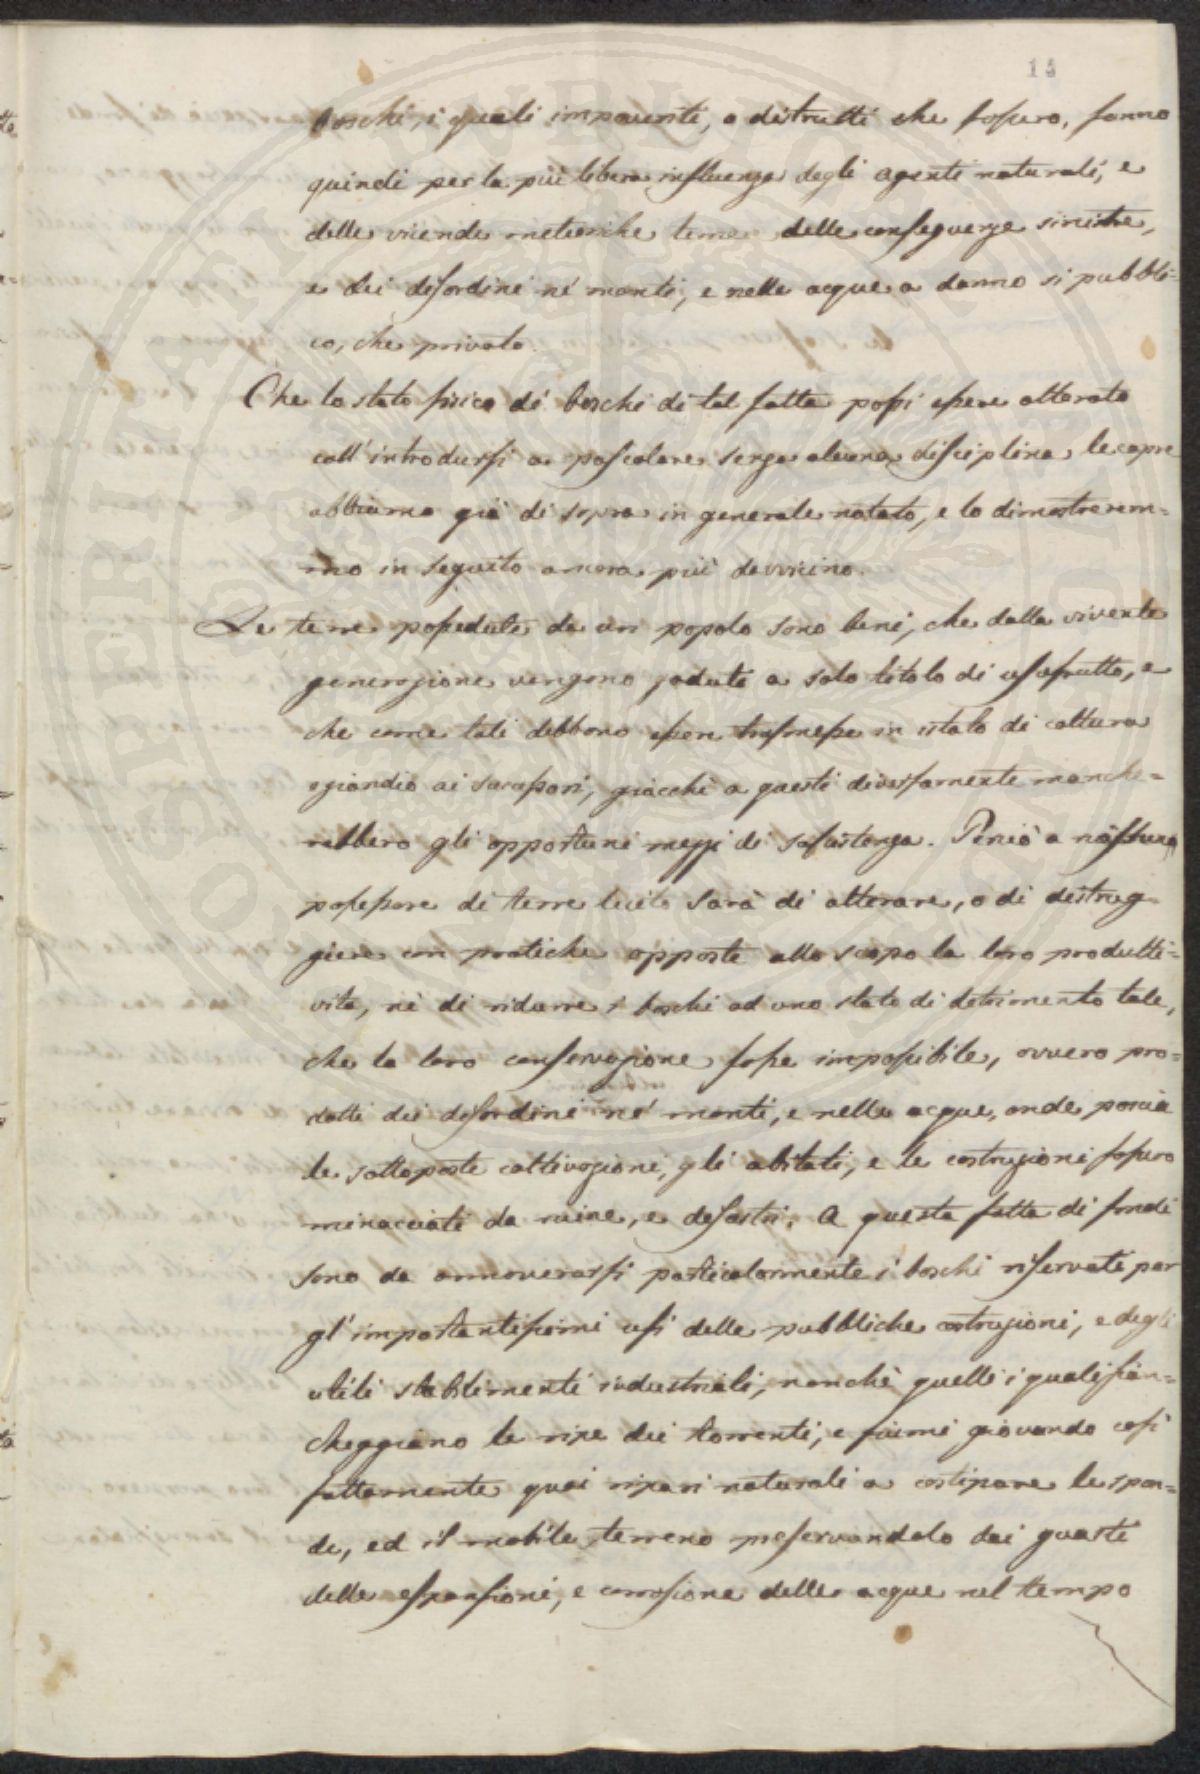 14
boschi, i quali impoveriti, o distrutti che fossero, fanno
quindi per la più libera influenza degli agenti naturali, e
delle vicende meteoriche temere delle conseguenze sinistre,
e dei disordini né monti, e nelle acque a danno sì pubbli-
co, che privato.
Che lo stato fisico dé boschi di tal fatta possi essere alterato
coll'introdursi a pascolare senza alcuna disciplina le capre
abbiamo già di sopra in generale notato, e lo dimostrerem-
mo in seguito ancora più davvicino.
Le terre possedute da un popolo sono beni, che dalla vivente
generazione vengono godute a solo titolo di usufrutto, e
che come tali debbono essere trasmesse in istato di coltura
eziandio ai successori, giacchè a questi diversamente manche-
rebbero gli opportuni mezzi di sussistenza. Perciò a nessun
possessore di terre lecito sarà di alterare, o di distrug-
gere con pratiche opposte allo scopo la loro produtti-
vità, nè di ridurre i boschi ad uno stato di detrimento tale,
che la loro conservazione fosse impossibile, ovvero pro-
dotti dei disordini né monti, e nelle acque, onde poscia
le sottoposte coltivazioni, gli abitati, e le costruzioni fossero
minacciati da ruine, e desastri. A questa fatta di fondi
sono da annoverarsi particolarmente i boschi riservati per
gl'importantissimi usi delle pubbliche costruzioni, e degli
utili stabilimenti industriali, nonchè quelli i quali fian-
cheggiano le ripe dei torrenti, e fiumi giovando così
fattamente quai ripari naturali a costipare le spon-
de, ed il mobile terreno preservandolo dai guasti
delle espansioni, e corrosione delle acque nel tempo